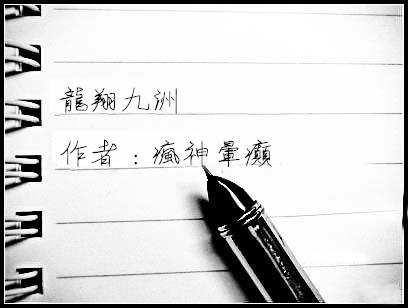 龍翔九洲
作者：瘋神暈癲